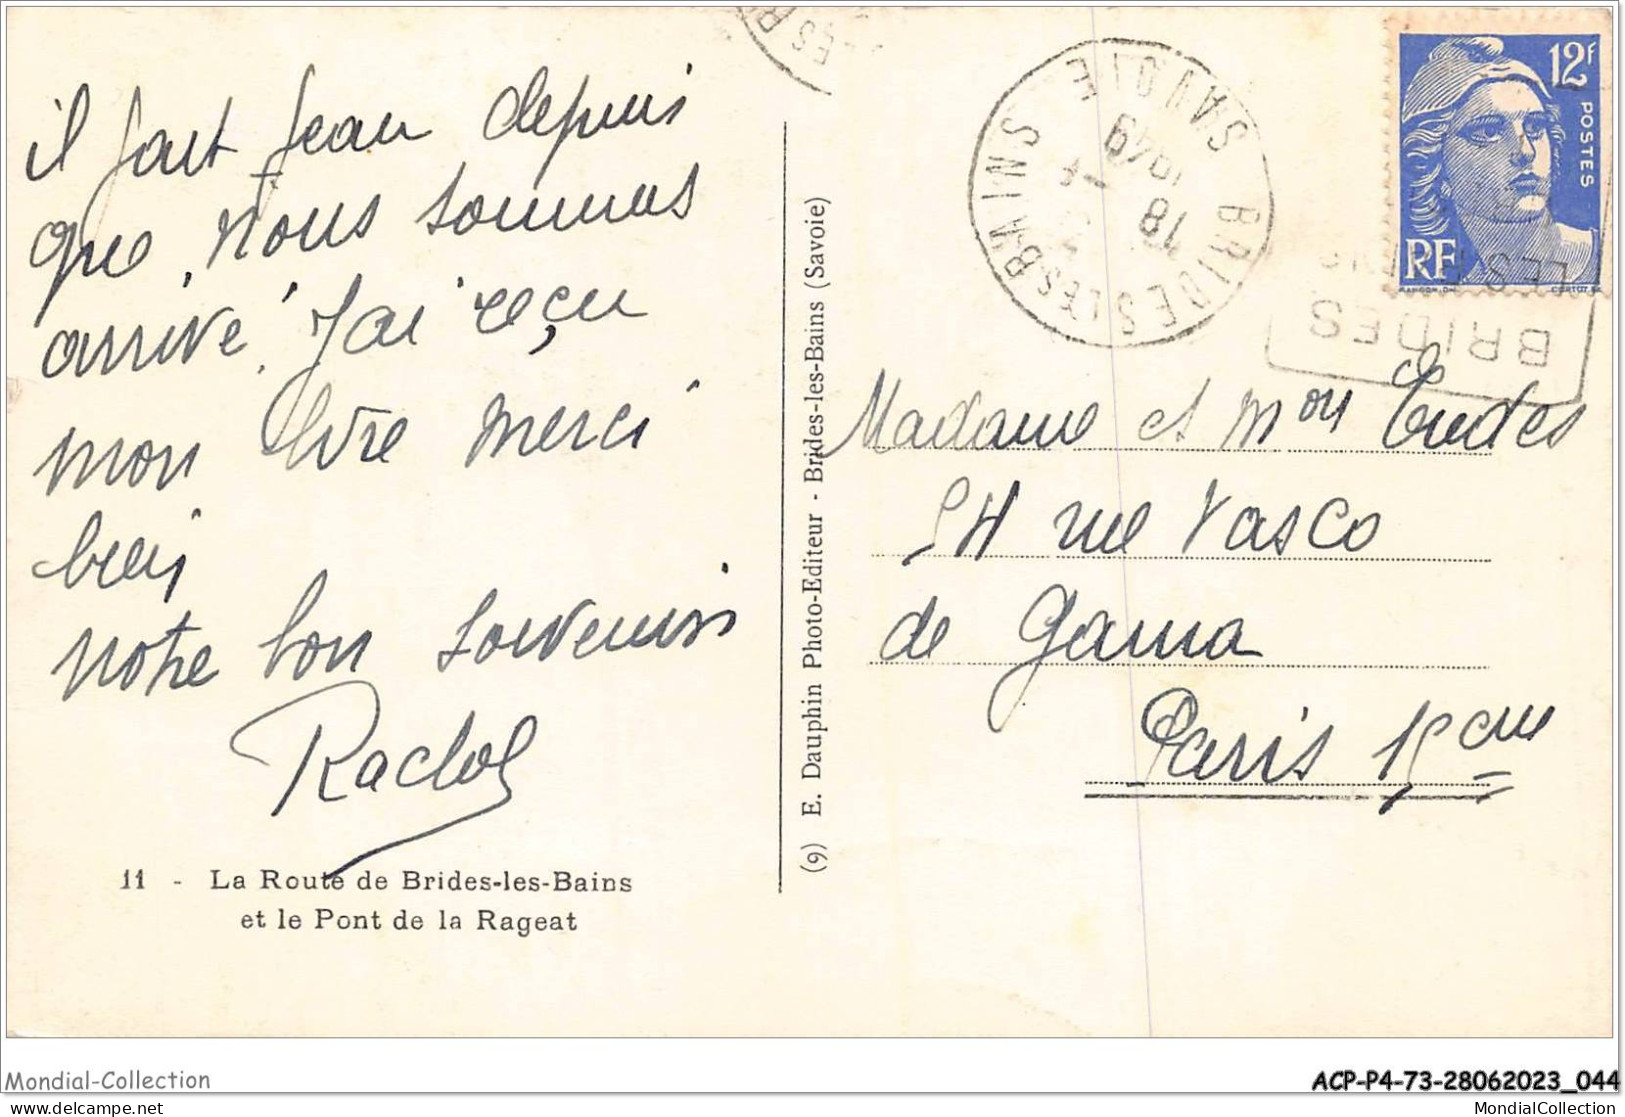 il fait beau depuis
que nous sommes
arrivé. J'ai reçu
mon livre merci
bien
notre bon souvenir
11 - La Route de Brides-les-Bains
et le Pont de la Rageat
(9) E. Dauphin Photo-Editeur - Brides-les-Bains (Savoie)
BRIDES LES BAINS SAVOIE
18
12F
POSTES
RF
BRIDES
LES
Madame et Mon
54 rue Vasco
de Gama
Paris 15eme
Mondial-Collection
ACP-P4-73-28062023_044
www.delcampe.net
MondialCollection